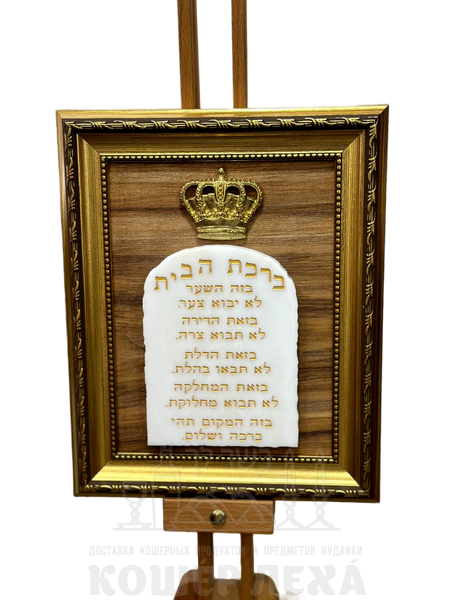 ברכת הבית
בזה השער
לא יבוא צער.
בזאת הדירה
לא תבוא צרה.
בזאת הדלת
לא תבאו בהלת.
בזאת המחלקה
לא תבוא מחלוקת.
בזה המקום תהי
ברכה ושלום.
ДОСТАВКА КОШЕРНЫХ ПРОДУКТОВ И ПРЕДМЕТОВ ИУДАИКИ
КОШЕР ЛЕХА́